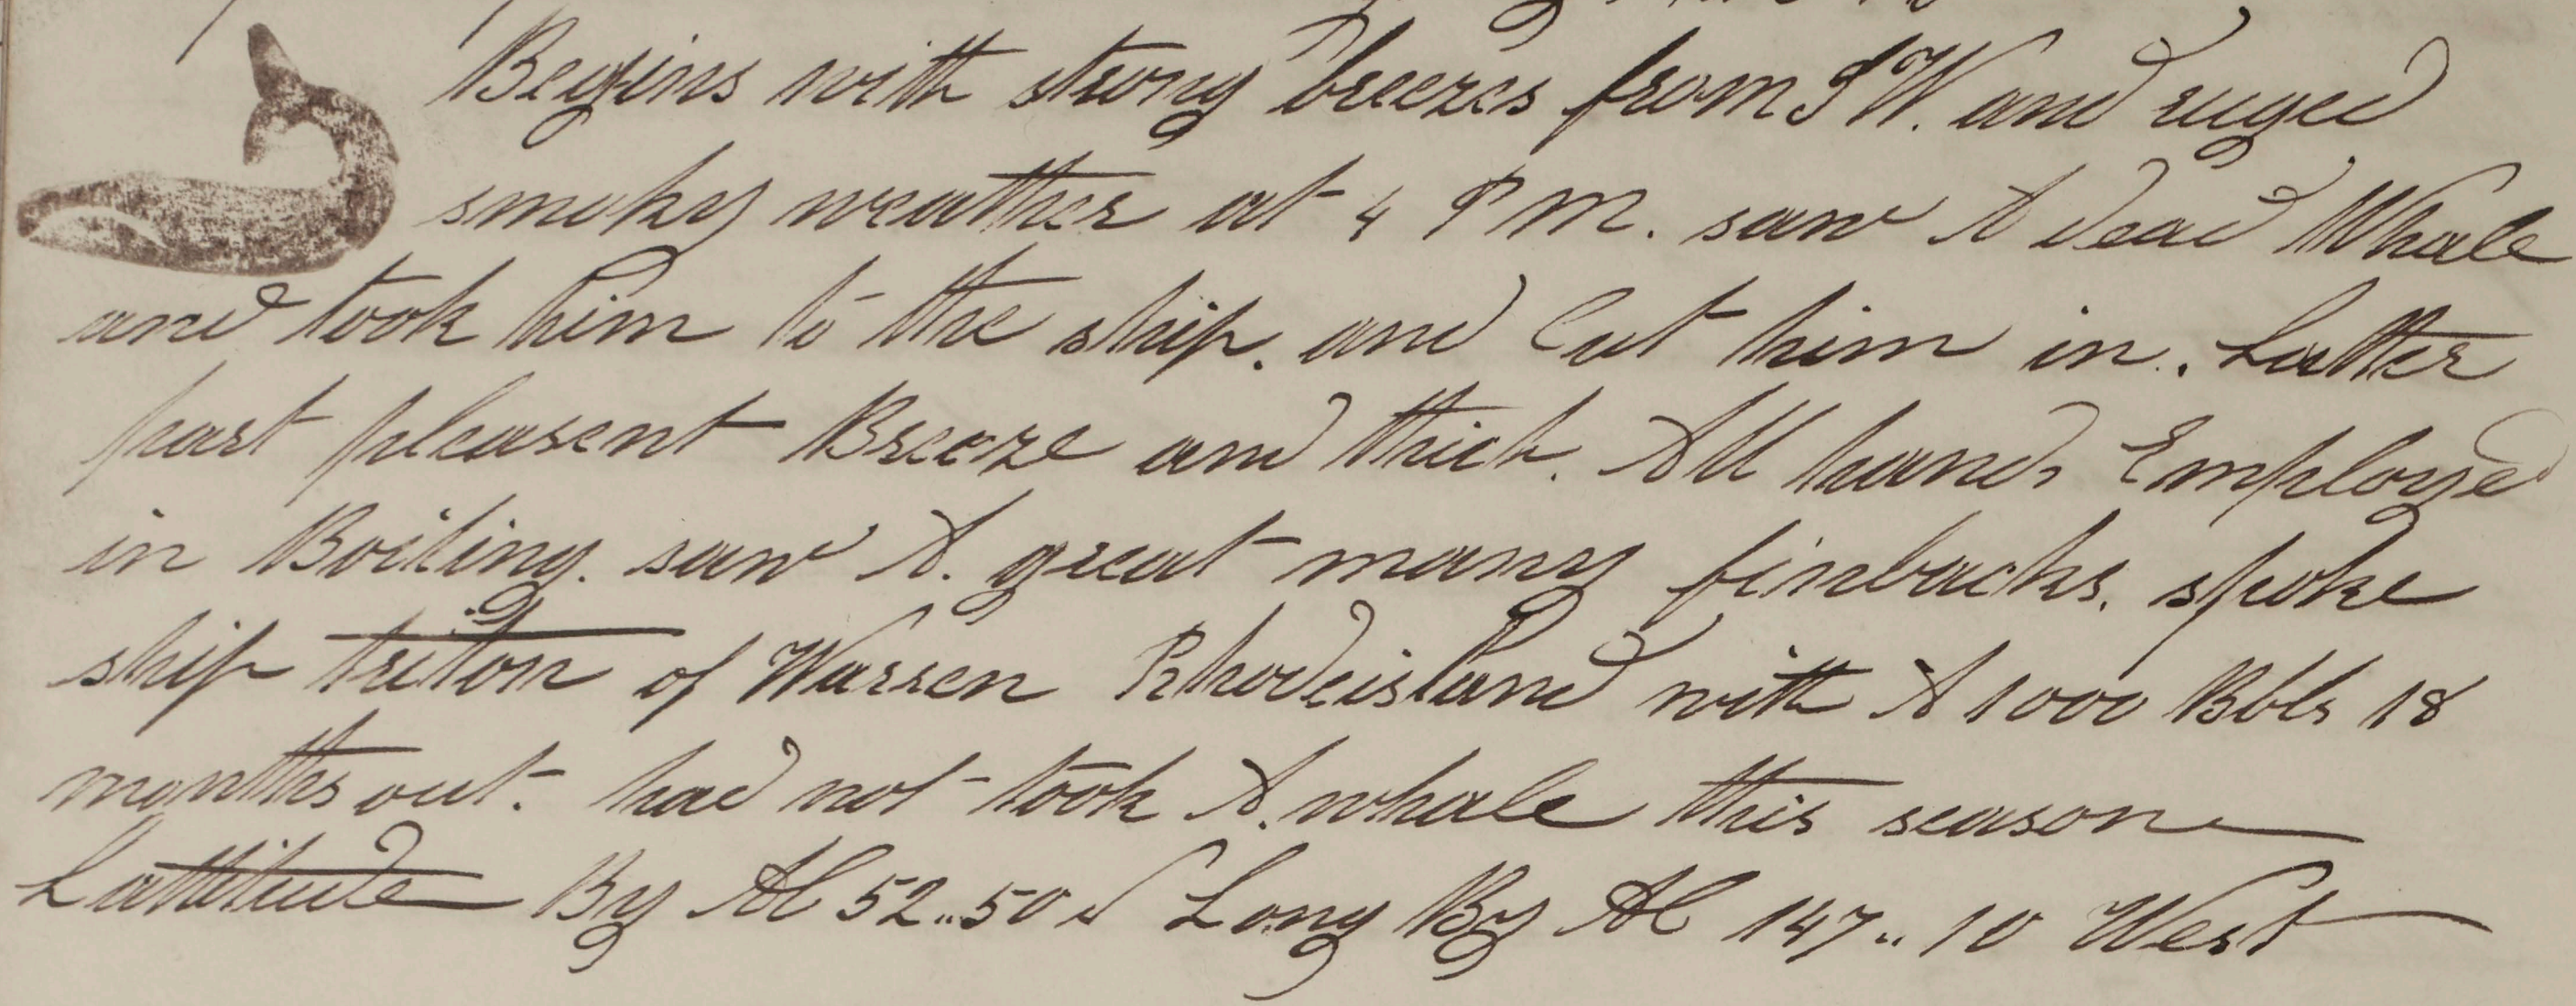 Begins with strong breezes from SW. and ruged
smoky weather at 4 PM. saw A dead Whale
and took him to the ship. and Cut him in. Latter
part pleasent Breeze and thick. All hands Employed
in Boiling. saw A. great many finbacks. spoke
ship triton of Warren Rhodeisland with A 1000 Bbls 18
months out. had not took A. whale this season
Lattitude By Ac 52..50 Long By Ac 147..10 West